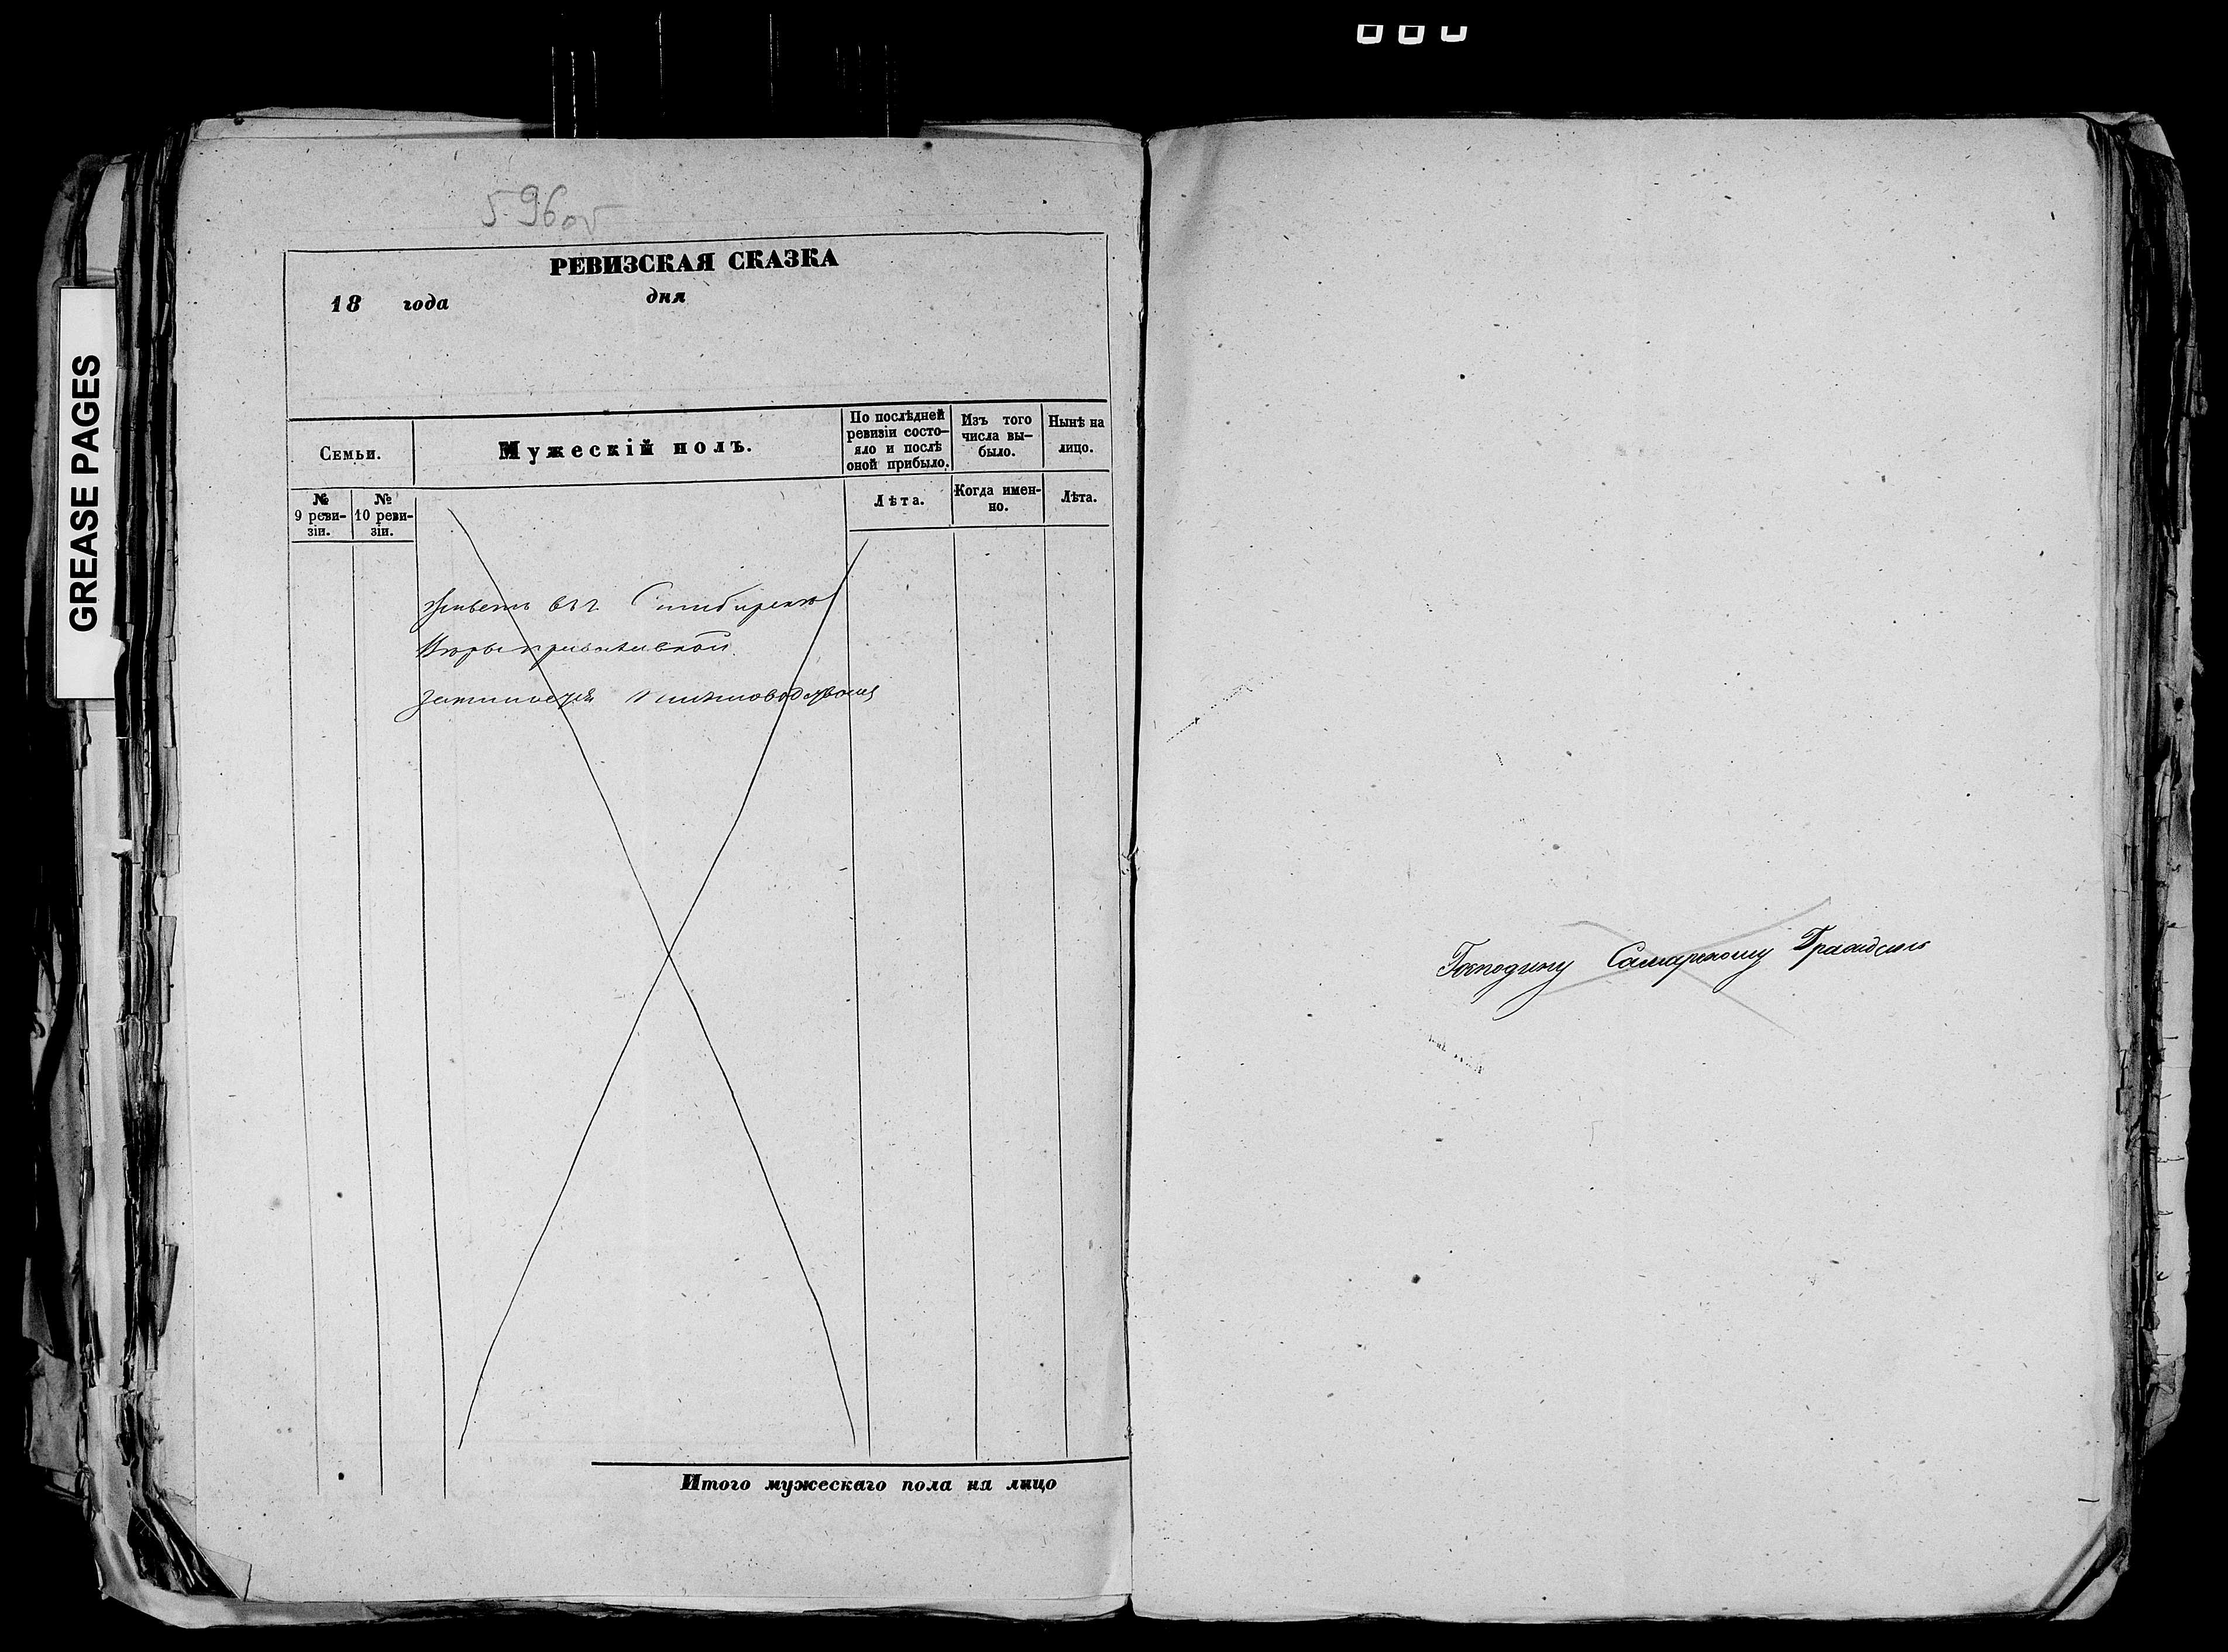 596об
РЕВИЗСКАЯ СКАЗКА
18 года дня
Семьи.
Мужескій полъ.
По послѣдней ревизіи состо-
яло и послѣ оной прибыло.
Изъ того числа вы-
было.
Нынѣ на лицо.
№ 9 реви-
зіи.
№ 10 реви-
зіи.
Лѣта.
Когда имен-
но.
Лѣта.
живетъ въ г Симбирскѣ
занимается
Итого мужескаго пола на лицо
Господину Самарскому
GREASE PAGES